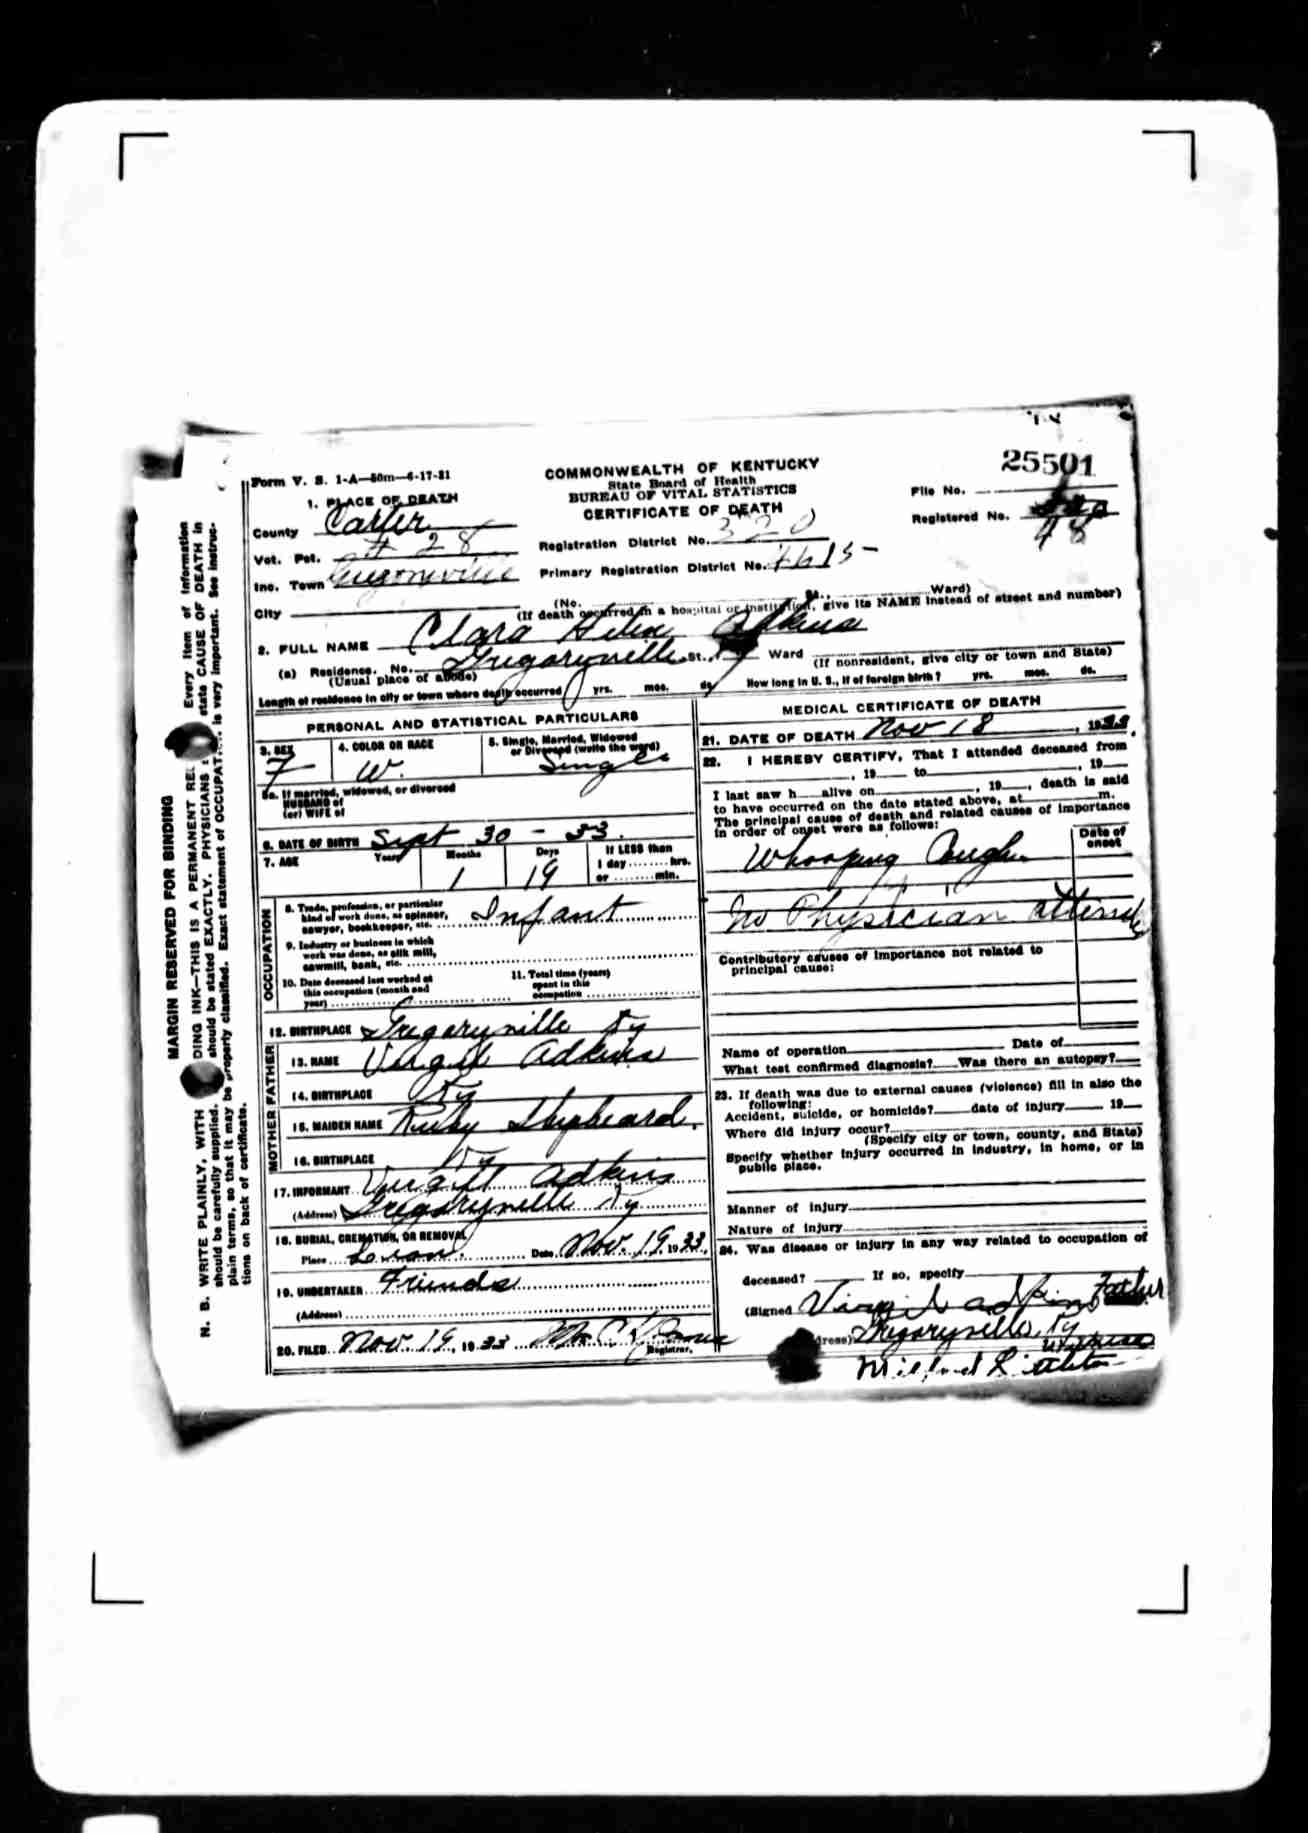 25501
Form V. S. 1-A—50m—6-17-31
COMMONWEALTH OF KENTUCKY
State Board of Health
BUREAU OF VITAL STATISTICS
CERTIFICATE OF DEATH
File No.
Registered No. 48
1. PLACE OF DEATH
County Carter
Vot. Pct. # 28
Inc. Town
City
Registration District No. 320
Primary Registration District No. 4615
(No. St., Ward)
(If death occurred in a hospital or institution, give its NAME instead of street and number)
2. FULL NAME Clara Helen Adkins
(a) Residence. No. Gregoryville St., Ward
(Usual place of abode) (If nonresident, give city or town and State)
Length of residence in city or town where death occurred yrs. mos. ds. How long in U. S., if of foreign birth? yrs. mos. ds.
PERSONAL AND STATISTICAL PARTICULARS
3. SEX
F
4. COLOR OR RACE
W.
5. Single, Married, Widowed
or Divorced (write the word)
Single
5a. If married, widowed, or divorced
HUSBAND of
(or) WIFE of
6. DATE OF BIRTH Sept 30 - 33.
7. AGE Years Months Days If LESS than
1 19 1 day........hrs.
or ........min.
OCCUPATION
8. Trade, profession, or particular
kind of work done, as spinner,
sawyer, bookkeeper, etc. Infant
9. Industry or business in which
work was done, as silk mill,
sawmill, bank, etc.
10. Date deceased last worked at
this occupation (month and
year)
11. Total time (years)
spent in this
occupation
12. BIRTHPLACE Gregoryville Ky
FATHER
13. NAME Virgil Adkins
14. BIRTHPLACE Ky
MOTHER
15. MAIDEN NAME Ruby Shepheard.
16. BIRTHPLACE Ky
17. INFORMANT Virgil Adkins
(Address) Gregoryville Ky
18. BURIAL, CREMATION, OR REMOVAL
Place Date Nov. 19, 1933.
19. UNDERTAKER Friends
(Address)
20. FILED Nov. 19, 1933
Registrar.
MEDICAL CERTIFICATE OF DEATH
21. DATE OF DEATH Nov 18, 1933.
22. I HEREBY CERTIFY, That I attended deceased from
, 19 to , 19
I last saw h alive on , 19 , death is said
to have occurred on the date stated above, at m.
The principal cause of death and related causes of importance
in order of onset were as follows:
Date of
onset
Whooping Cough
No Physician attend
Contributory causes of importance not related to
principal cause:
Name of operation Date of
What test confirmed diagnosis? Was there an autopsy?
23. If death was due to external causes (violence) fill in also the
following:
Accident, suicide, or homicide? date of injury 19
Where did injury occur?
(Specify city or town, county, and State)
Specify whether injury occurred in industry, in home, or in
public place.
Manner of injury
Nature of injury
24. Was disease or injury in any way related to occupation of
deceased? If so, specify
(Signed Virgil Adkins Father
dress) Gregoryville, Ky
witness
MARGIN RESERVED FOR BINDING
N. B. WRITE PLAINLY, WITH DING INK—THIS IS A PERMANENT RE Every item of information
should be carefully supplied. should be stated EXACTLY. PHYSICIANS state CAUSE OF DEATH in
plain terms, so that it may be properly classified. Exact statement of OCCUPAT is very important. See instruc-
tions on back of certificate.